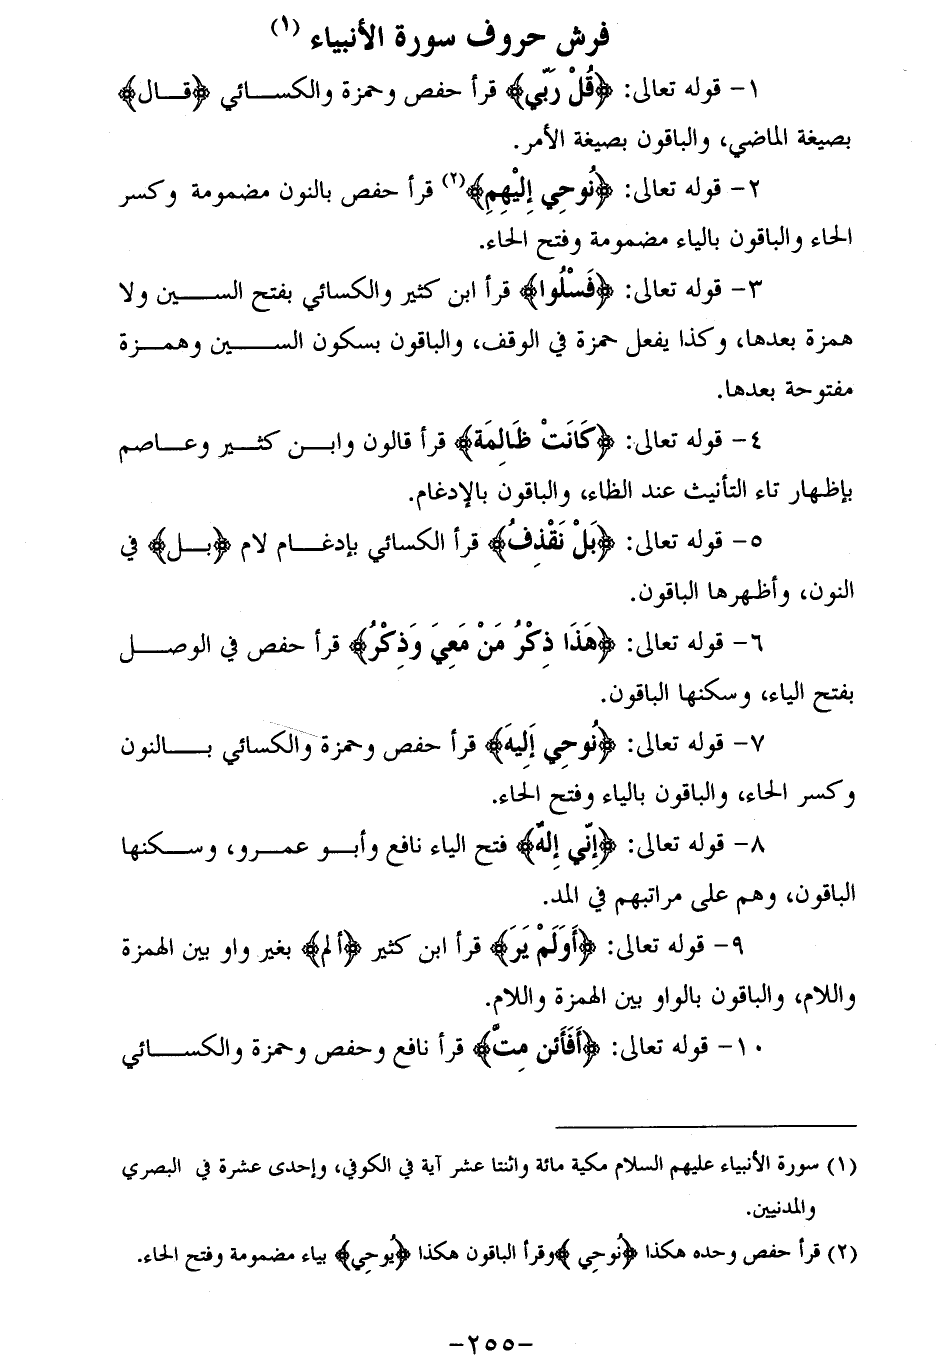 فرش حروف سورة الأنبياء (١)
١- قوله تعالى: ﴿قُلْ رَبّي﴾ قرأ حفص وحمزة والكسائي ﴿قال﴾
بصيغة الماضي، والباقون بصيغة الأمر.
٢- قوله تعالى: ﴿نُوحِي إِليْهِمِ﴾(٢) قرأ حفص بالنون مضمومة وكسر
الحاء والباقون بالياء مضمومة وفتح الحاء.
٣- قوله تعالى: ﴿فَسْلُوا﴾ قرأ ابن كثير والكسائي بفتح السين ولا
همزة بعدها، وكذا يفعل حمزة في الوقف، والباقون بسكون السين وهمزة
مفتوحة بعدها.
٤- قوله تعالى: ﴿كَانَتْ ظَالِمَة﴾ قرأ قالون وابن كثير وعاصم
بإظهار تاء التأنيث عند الظاء، والباقون بالإدغام.
٥- قوله تعالى: ﴿بَلْ نَقْذِفُ﴾ قرأ الكسائي بإدغام لام ﴿بل﴾ في
النون، وأظهرها الباقون.
٦- قوله تعالى: ﴿هَذَا ذِكْرُ مَنْ مَعِيَ وَذِكْرُ﴾ قرأ حفص في الوصل
بفتح الياء، وسكنها الباقون.
٧- قوله تعالى: ﴿نُوحِي إَلِيهَ﴾ قرأ حفص وحمزة والكسائي بالنون
وكسر الحاء، والباقون بالياء وفتح الحاء.
٨- قوله تعالى: ﴿إِنّي إِلهٌ﴾ فتح الياء نافع وأبو عمرو، وسكنها
الباقون، وهم على مراتبهم في المد.
٩- قوله تعالى: ﴿أَوَلَمْ يَرَ﴾ قرأ ابن كثير ﴿ألم﴾ بغير واو بين الهمزة
واللام، والباقون بالواو بين الهمزة واللام.
١٠- قوله تعالى: ﴿أَفَأَئن مِتَّ﴾ قرأ نافع وحفص وحمزة والكسائي
(١) سورة الأنبياء عليهم السلام مكية مائة واثنتا عشر آية في الكوفي، وإحدى عشرة في البصري
والمدنيين.
(٢) قرأ حفص وحده هكذا ﴿نُوحِي﴾ وقرأ الباقون هكذا ﴿يُوحِي﴾ بياء مضمومة وفتح الحاء.
-٢٥٥-